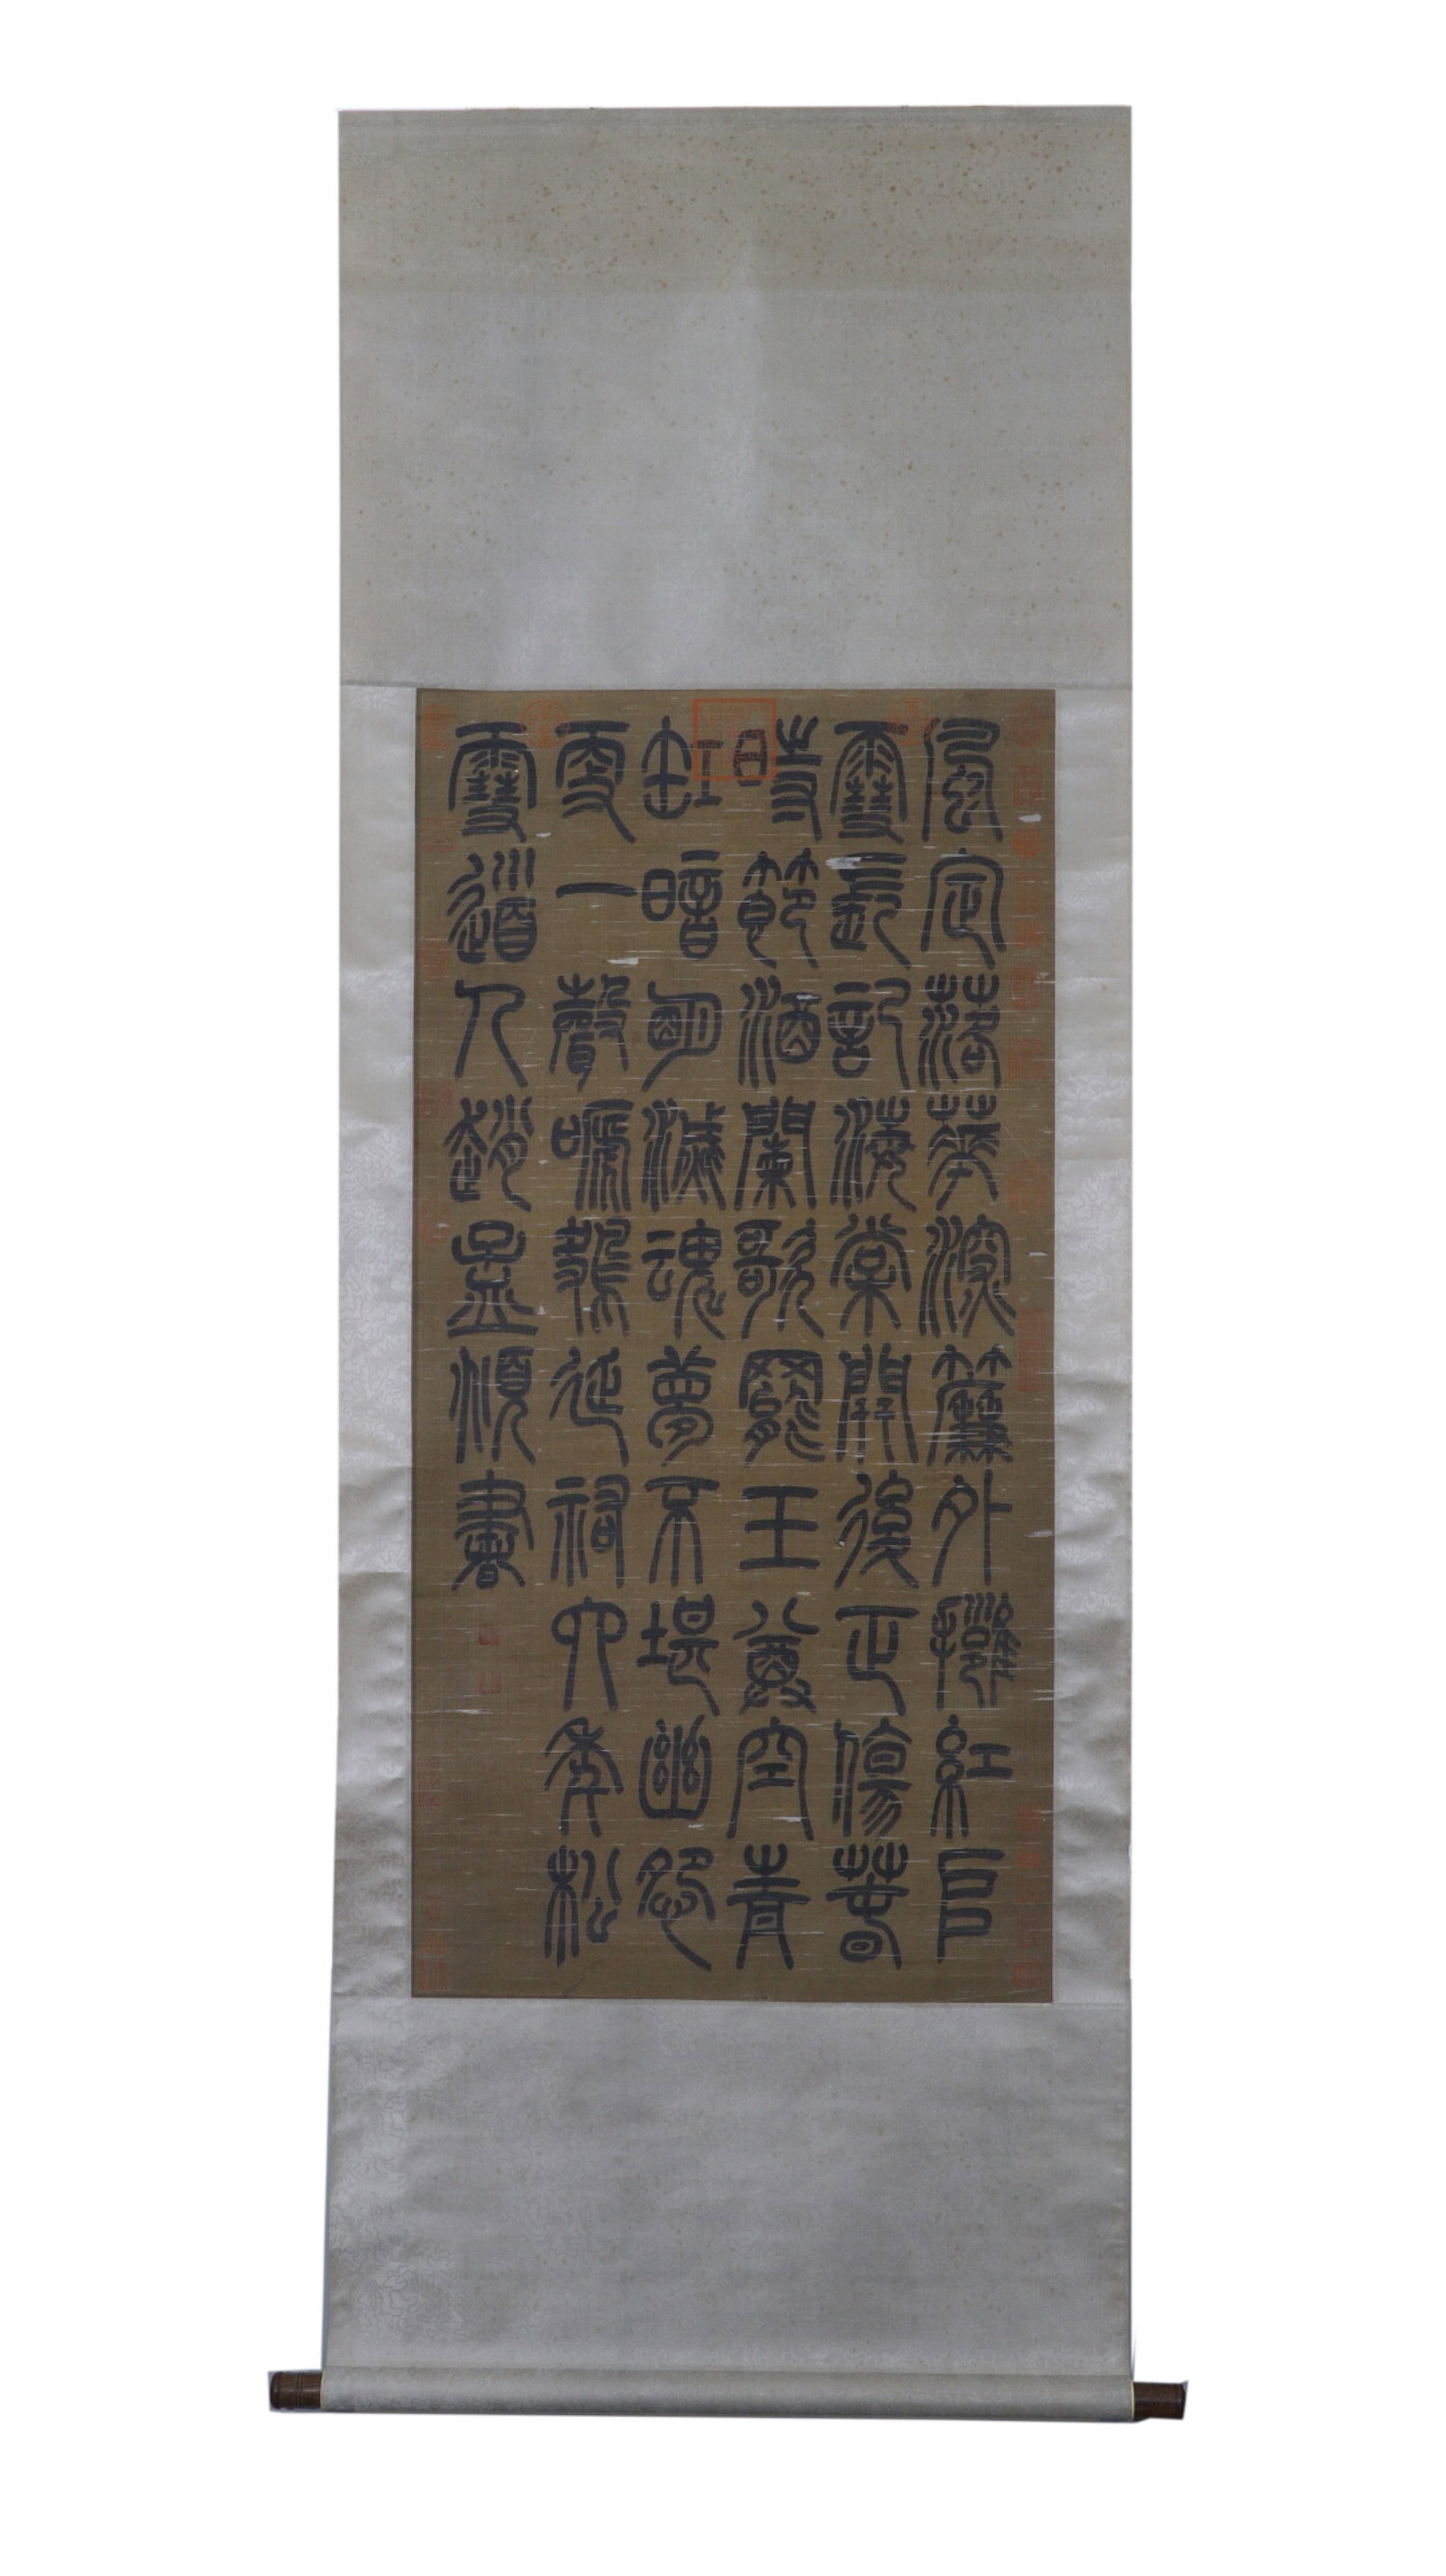 風定落花深簾外擁紅𠂤
雪長記海棠開後正傷春
時節酒闌歌罷玉尊空青
缸暗明滅魂夢不堪幽怨
更一聲嗁鴂延祐六年松
雪道人趙孟頫書